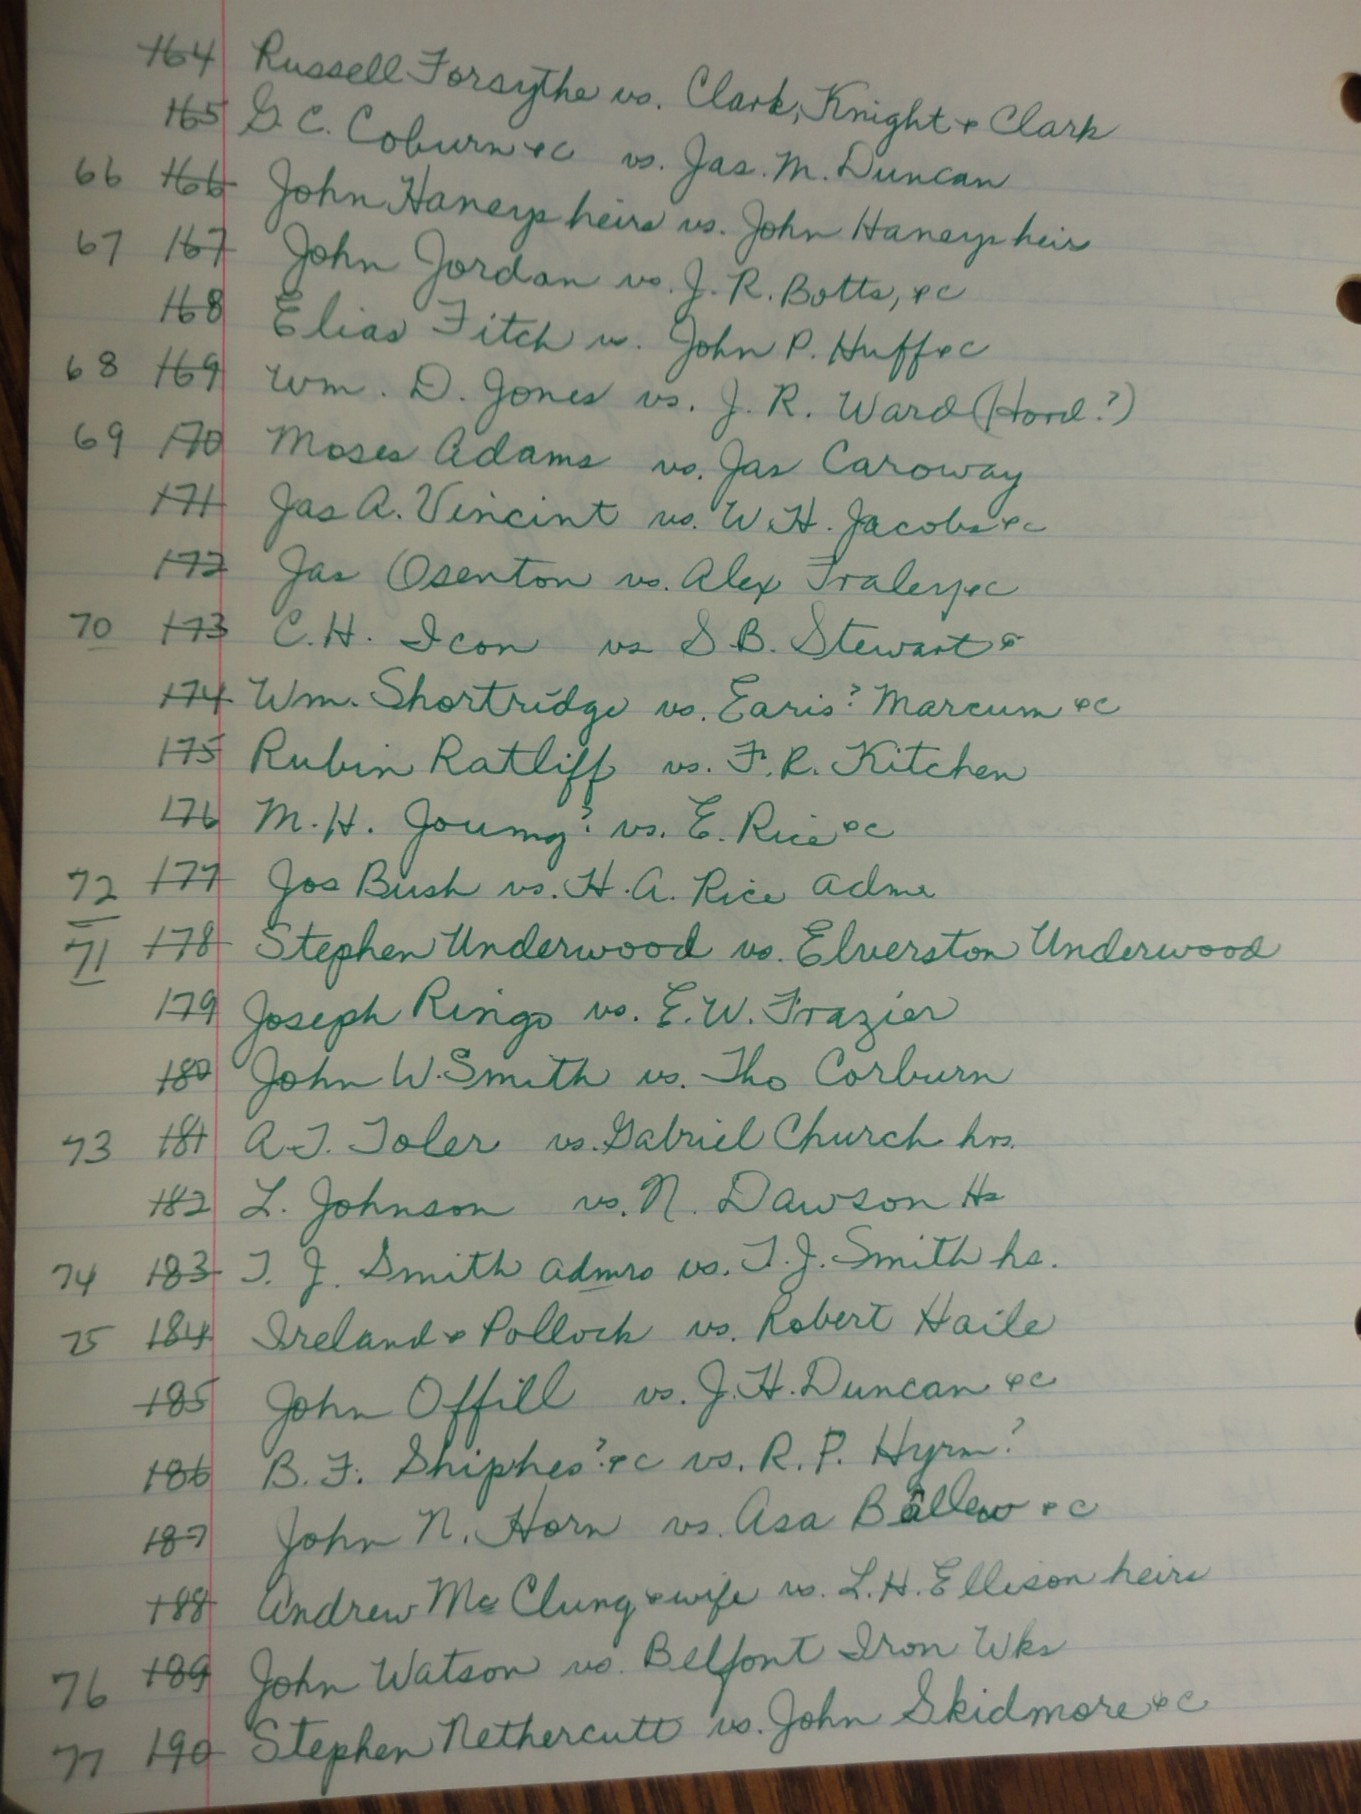 164 Russell Forsythe vs. Clark, Knight & Clark
165 G. C. Coburn &c vs. Jas. M. Duncan
66 166 John Haneys heirs vs. John Haneys heirs
67 167 John Jordan vs. J. R. Botts, &c
168 Elias Fitch vs. John P. Huff &c
68 169 Wm. D. Jones vs. J. R. Ward (Hord?)
69 170 Moses Adams vs. Jas Caroway
171 Jas A. Vincint vs. W. H. Jacobs &c
172 Jas Osenton vs. Alex Fraley &c
70 173 C. H. Icon vs S. B. Stewart &
174 Wm. Shortridge vs. Earis? Marcum &c
175 Rubin Ratliff vs. F. R. Kitchen
176 M. H. Joumg? vs. E. Rice &c
72 177 Jos Bush vs. H. A. Rice adme
71 178 Stephen Underwood vs. Elverston Underwood
179 Joseph Ringo vs. E. W. Frazier
180 John W. Smith vs. Tho Corburn
73 181 A. T. Toler vs. Gabriel Church hrs.
182 L. Johnson vs. N. Dawson Hs
74 183 T. J. Smith admrs vs. T. J. Smith hs.
75 184 Ireland & Pollock vs. Robert Haile
185 John Offill vs. J. H. Duncan &c
186 B. F. Shiphes? &c vs. R. P. Hyrm?
187 John N. Horn vs. Asa Ballew &c
188 Andrew McClung & wife vs. L. H. Ellison heirs
76 189 John Watson vs. Belfont Iron Wks
77 190 Stephen Nethercutt vs. John Skidmore &c